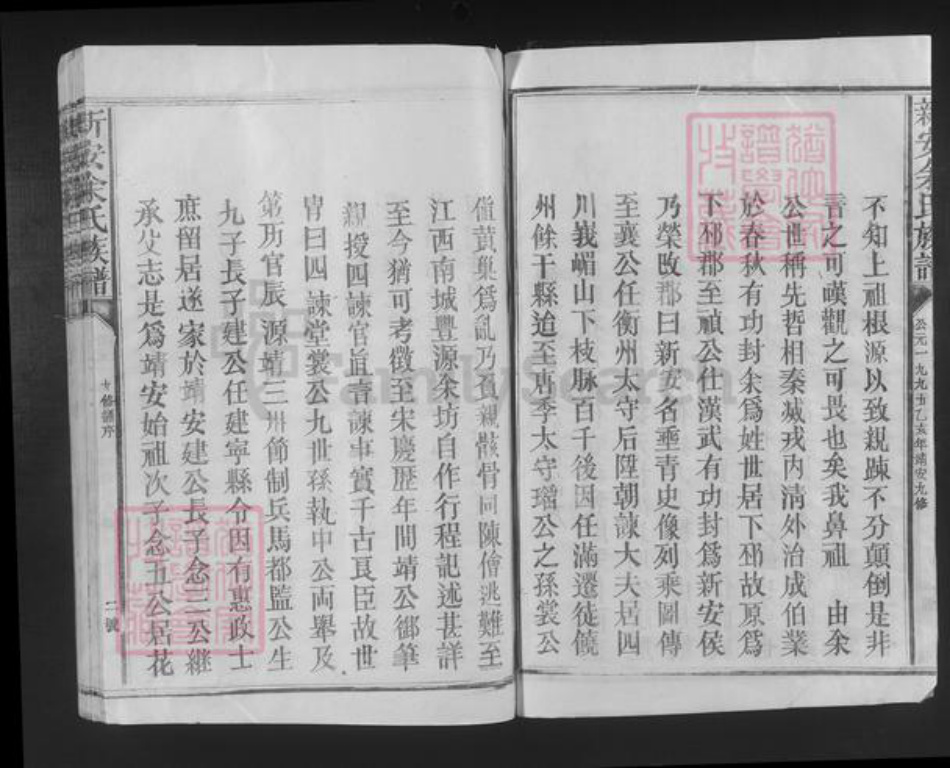 新安余氏族譜
公元一九九五乙亥年靖安九修
不知上祖根源以致親踈不分顛倒是非
言之可嘆觀之可畏也矣我鼻祖 由余
公世稱先哲相秦烕戎內清外治成伯業
於春秋有功封余爲姓世居下邳故原爲
下邳郡至禎公仕漢武有功封爲新安侯
乃榮改郡曰新安名垂青史像列乘圖傳
至襄公任衡州太守后陞朝諫大夫居四
川峩嵋山下枝脉百千後因任滿遷徒饒
州餘干縣迨至唐季太守璿公之孫裳公
僅黃巢爲亂乃負親骸骨同陳儈逃難至
江西南城豐源余坊自作行程記述甚詳
至今猶可考徵至宋慶歷年間靖公御筆
親授四諫官眞言諫事實千古良臣故世
冑曰四諫堂裳公九世孫執中公両舉及
第功官辰 源靖三州節制兵馬都監公生
九子長子建公任建寧縣令因有惠政士
庶留居遂家於靖安建公長子念三公継
承父志是爲靖安始祖次子念五公居花
九修譜序
二號
新安余氏族譜
FamilySearch